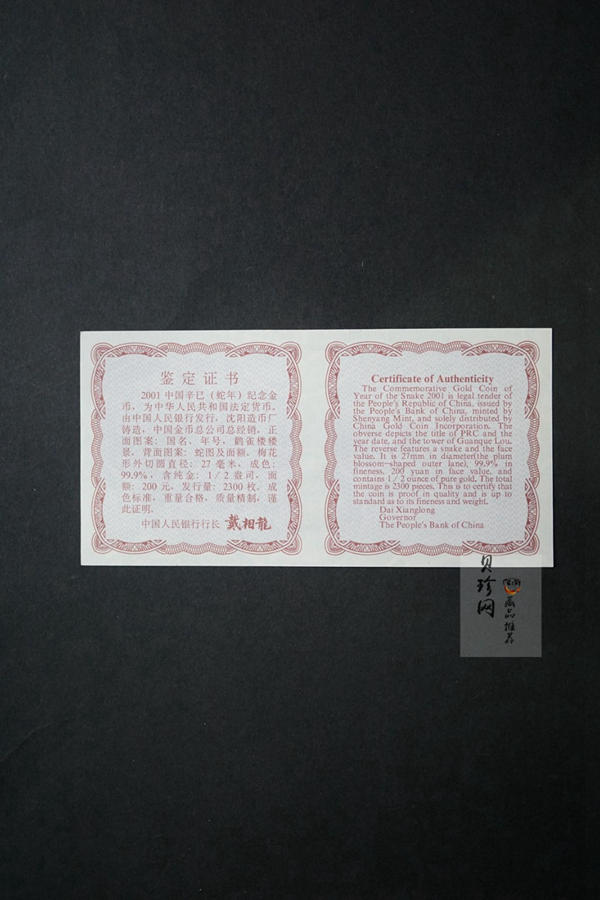 鉴定证书
2001中国辛巳（蛇年）纪念金
币，为中华人民共和国法定货币。
由中国人民银行发行，沈阳造币厂
铸造，中国金币总公司总经销。正
面图案：国名、年号，鹳雀楼楼
景，背面图案：蛇图及面额。梅花
形外切圆直径：27毫米，成色：
99.9%，含纯金：1/2盎司，面
额：200元，发行量：2300枚。成
色标准，重量合格，质量精制，谨
此证明。
中国人民银行行长 戴相龍
Certificate of Authenticity
The Commemorative Gold Coin of
Year of the Snake 2001 is legal tender of
the People's Republic of China, issued by
the People's Bank of China, minted by
Shenyang Mint, and solely distributed by
China Gold Coin Incorporation. The
obverse depicts the title of PRC and the
year date, and the tower of Guanque Lou.
The reverse features a snake and the face
value. It is 27mm in diameter(the plum
blossom-shaped outer lane), 99.9% in
fineness, 200 yuan in face value, and
contains 1/2 ounce of pure gold. The total
mintage is 2300 pieces. This is to certify that
the coin is proof in quality and is up to
standard as to its fineness and weight.
Dai Xianglong
Governor
The People's Bank of China
贝珍网
藏品推荐